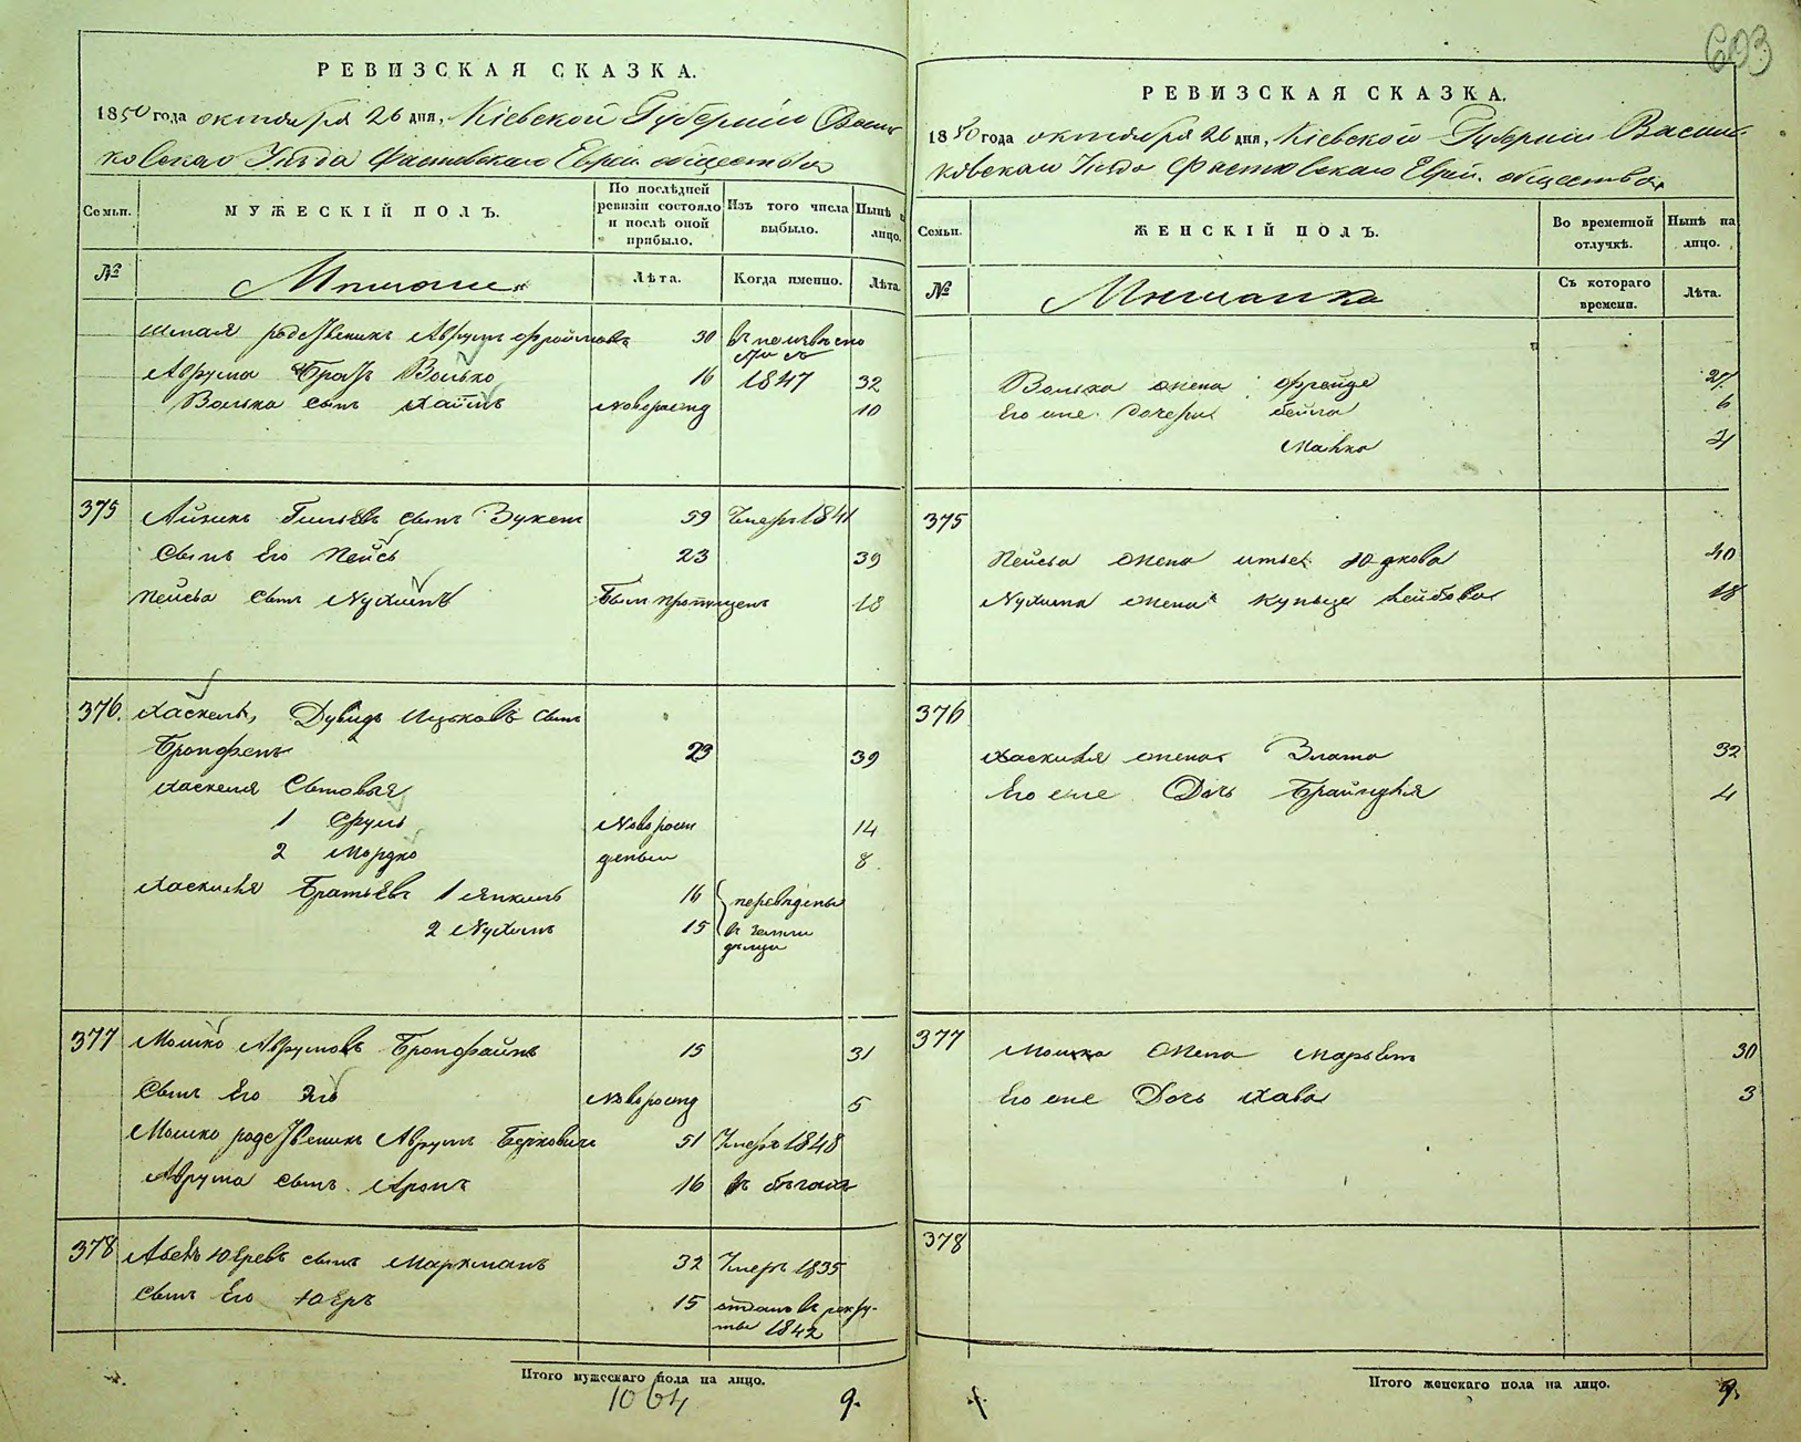 603
РЕВИЗСКАЯ СКАЗКА.
1850 года октября 26 дня, Кіевской Губерніи Василь
ковскаго Уѣзда Фастовскаго Еврей. общества
Семьи.
МУЖЕСКІЙ ПОЛЪ.
По послѣдней ревизіи состояло и послѣ оной прибыло.
Изъ того числа выбыло.
Нынѣ на лицо.
№
Мѣщане
Лѣта.
Когда именно.
Лѣта.
родственникъ Аврумъ Фроимовъ 30 въ неизвѣстно
Аврума братъ Волько 16 1847 32
Волька сынъ Хаимъ новорожд 10
375 Айзикъ сынъ 59 Умеръ 1841
Сынъ Его Пейсъ 23 39
Пейса сынъ Нухимъ Былъ пропущенъ 18
376. Хаскель, Дувидъ Ицьковъ сынъ
Бронфенъ 23 39
Хаскеля Сыновья
1 Сруль Новорож 14
2 Мордко деные 8
Хаскеля Братьевъ 1 Янкель 16 переведены
2 Нухимъ 15 въ земле
дѣльцы
377 Мошко Аврумовъ Бронфайнъ 15 31
Сынъ Его новорожд 5
Мошко родственникъ Аврумъ Берковичъ 51 Умеръ 1848
Аврума сынъ Аронъ 16 въ бѣгахъ
378 сынъ Маркманъ 32 Умеръ 1835
Сынъ Его 15 отданъ въ рекру-
ты 1842
Итого мужескаго пола на лицо.
1064 9.
РЕВИЗСКАЯ СКАЗКА.
1850 года октября 26 дня, Кіевской Губерніи Василь-
ковскаго Уѣзда Фастовскаго Еврей. общества
Семьи.
ЖЕНСКІЙ ПОЛЪ.
Во временной отлучкѣ.
Нынѣ на лицо.
№
Мѣщанка
Съ котораго времени.
Лѣта.
Волька жена Фрейде
Его же дочери Бейла 6
Малка
375
Пейса жена Юдкова 40
Нухима жена Лейбова 18
376
Хаскеля жена Злата 32
Его же Дочь Брайндля 4
377 Мошка Жена Марьемъ 30
Его же Дочь Хава 3
378
Итого женскаго пола на лицо. 9.